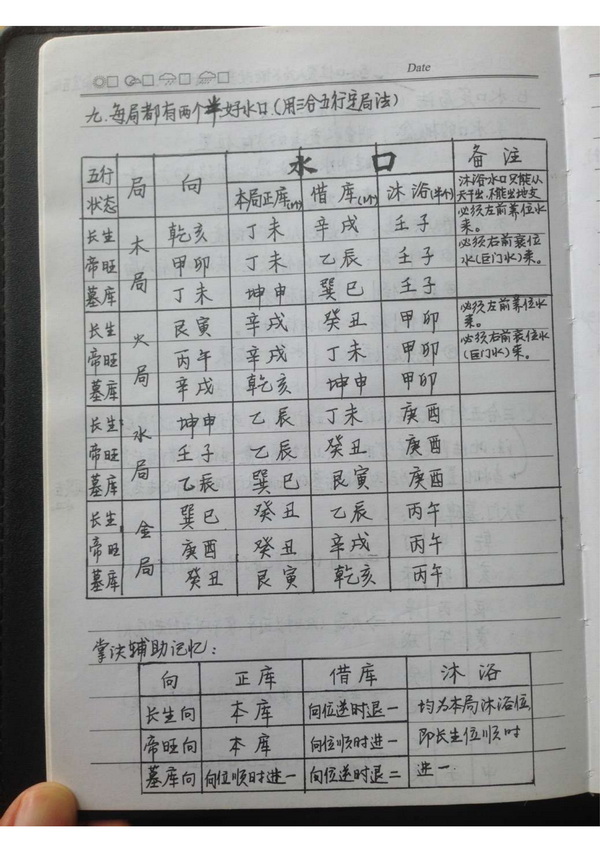 Date
九.每局都有两个半好水口.(用三合五行定局法)
五行状态 局 向 水口 备注
本局正库(1个) 借库(1个) 沐浴(半个) 沐浴水口只能从天干出,不能出地支
长生 木局 乾亥 丁未 辛戌 壬子 必须左前养位水来。
帝旺 甲卯 丁未 乙辰 壬子 必须右前衰位水(巨门水)来。
墓库 丁未 坤申 巽巳 壬子
长生 火局 艮寅 辛戌 癸丑 甲卯 必须左前养位水来。
帝旺 丙午 辛戌 丁未 甲卯 必须右前衰位水(巨门水)来。
墓库 辛戌 乾亥 坤申 甲卯
长生 水局 坤申 乙辰 丁未 庚酉
帝旺 壬子 乙辰 癸丑 庚酉
墓库 乙辰 巽巳 艮寅 庚酉
长生 金局 巽巳 癸丑 乙辰 丙午
帝旺 庚酉 癸丑 辛戌 丙午
墓库 癸丑 艮寅 乾亥 丙午
掌诀辅助记忆:
向 正库 借库 沐浴
长生向 本库 向位逆时退一 均为本局沐浴位
帝旺向 本库 向位顺时进一 即长生位顺时
墓库向 向位顺时进一 向位逆时退二 进一